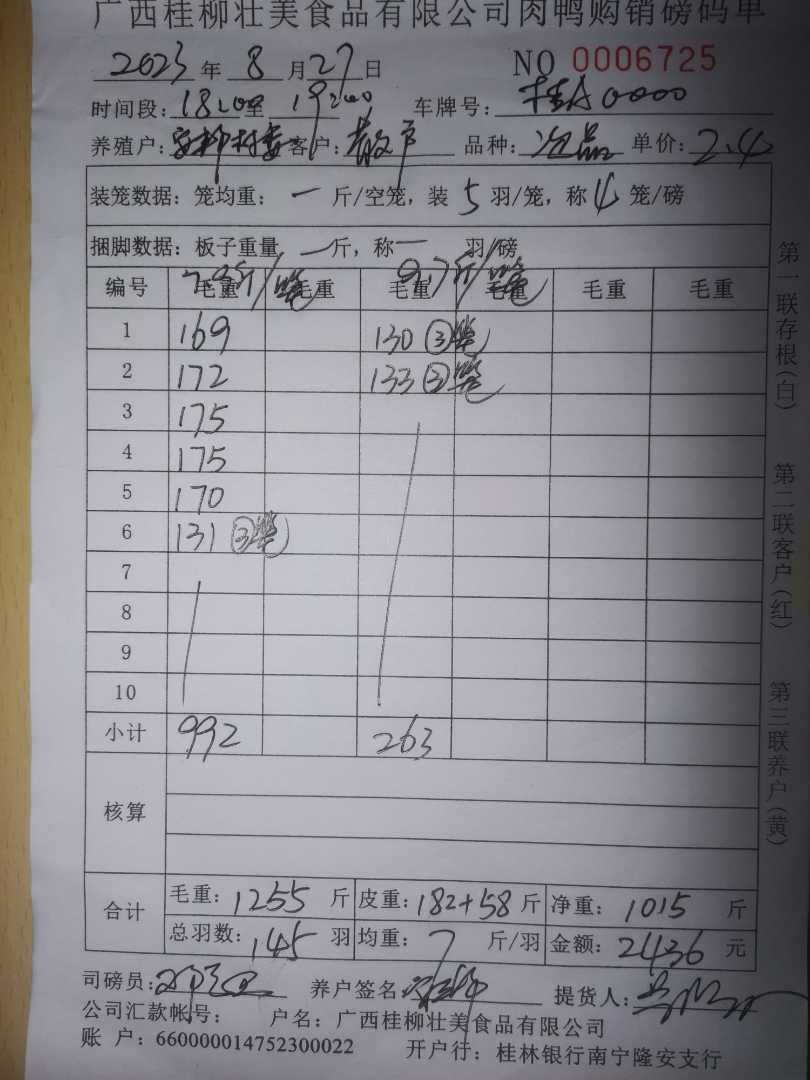 广西桂柳壮美食品有限公司肉鸭购销磅码单
2023 年 8 月 27 日 NO 0006725
时间段: 18:00 至 19:00 车牌号: 桂A0000
养殖户: 客户: 散户 品种: 次品 单价: 2.4
装笼数据: 笼均重: 一 斤/空笼, 装 5 羽/笼, 称 4 笼/磅
捆脚数据: 板子重量 一 斤, 称 一 羽/磅
斤/笼 9.7斤/笼
编号 毛重 毛重 毛重 毛重 毛重 毛重
1 169 130 ③笼
2 172 133 ③笼
3 175
4 175
5 170
6 131 ③笼
7
8
9
10
小计 992 263
核算
合计 毛重: 1255 斤 皮重: 182+58 斤 净重: 1015 斤
总羽数: 145 羽 均重: 7 斤/羽 金额: 2436 元
司磅员: 养户签名 提货人:
公司汇款帐号: 户名: 广西桂柳壮美食品有限公司
账 户: 660000014752300022 开户行: 桂林银行南宁隆安支行
第一联存根(白)
第二联客户(红)
第三联养户(黄)